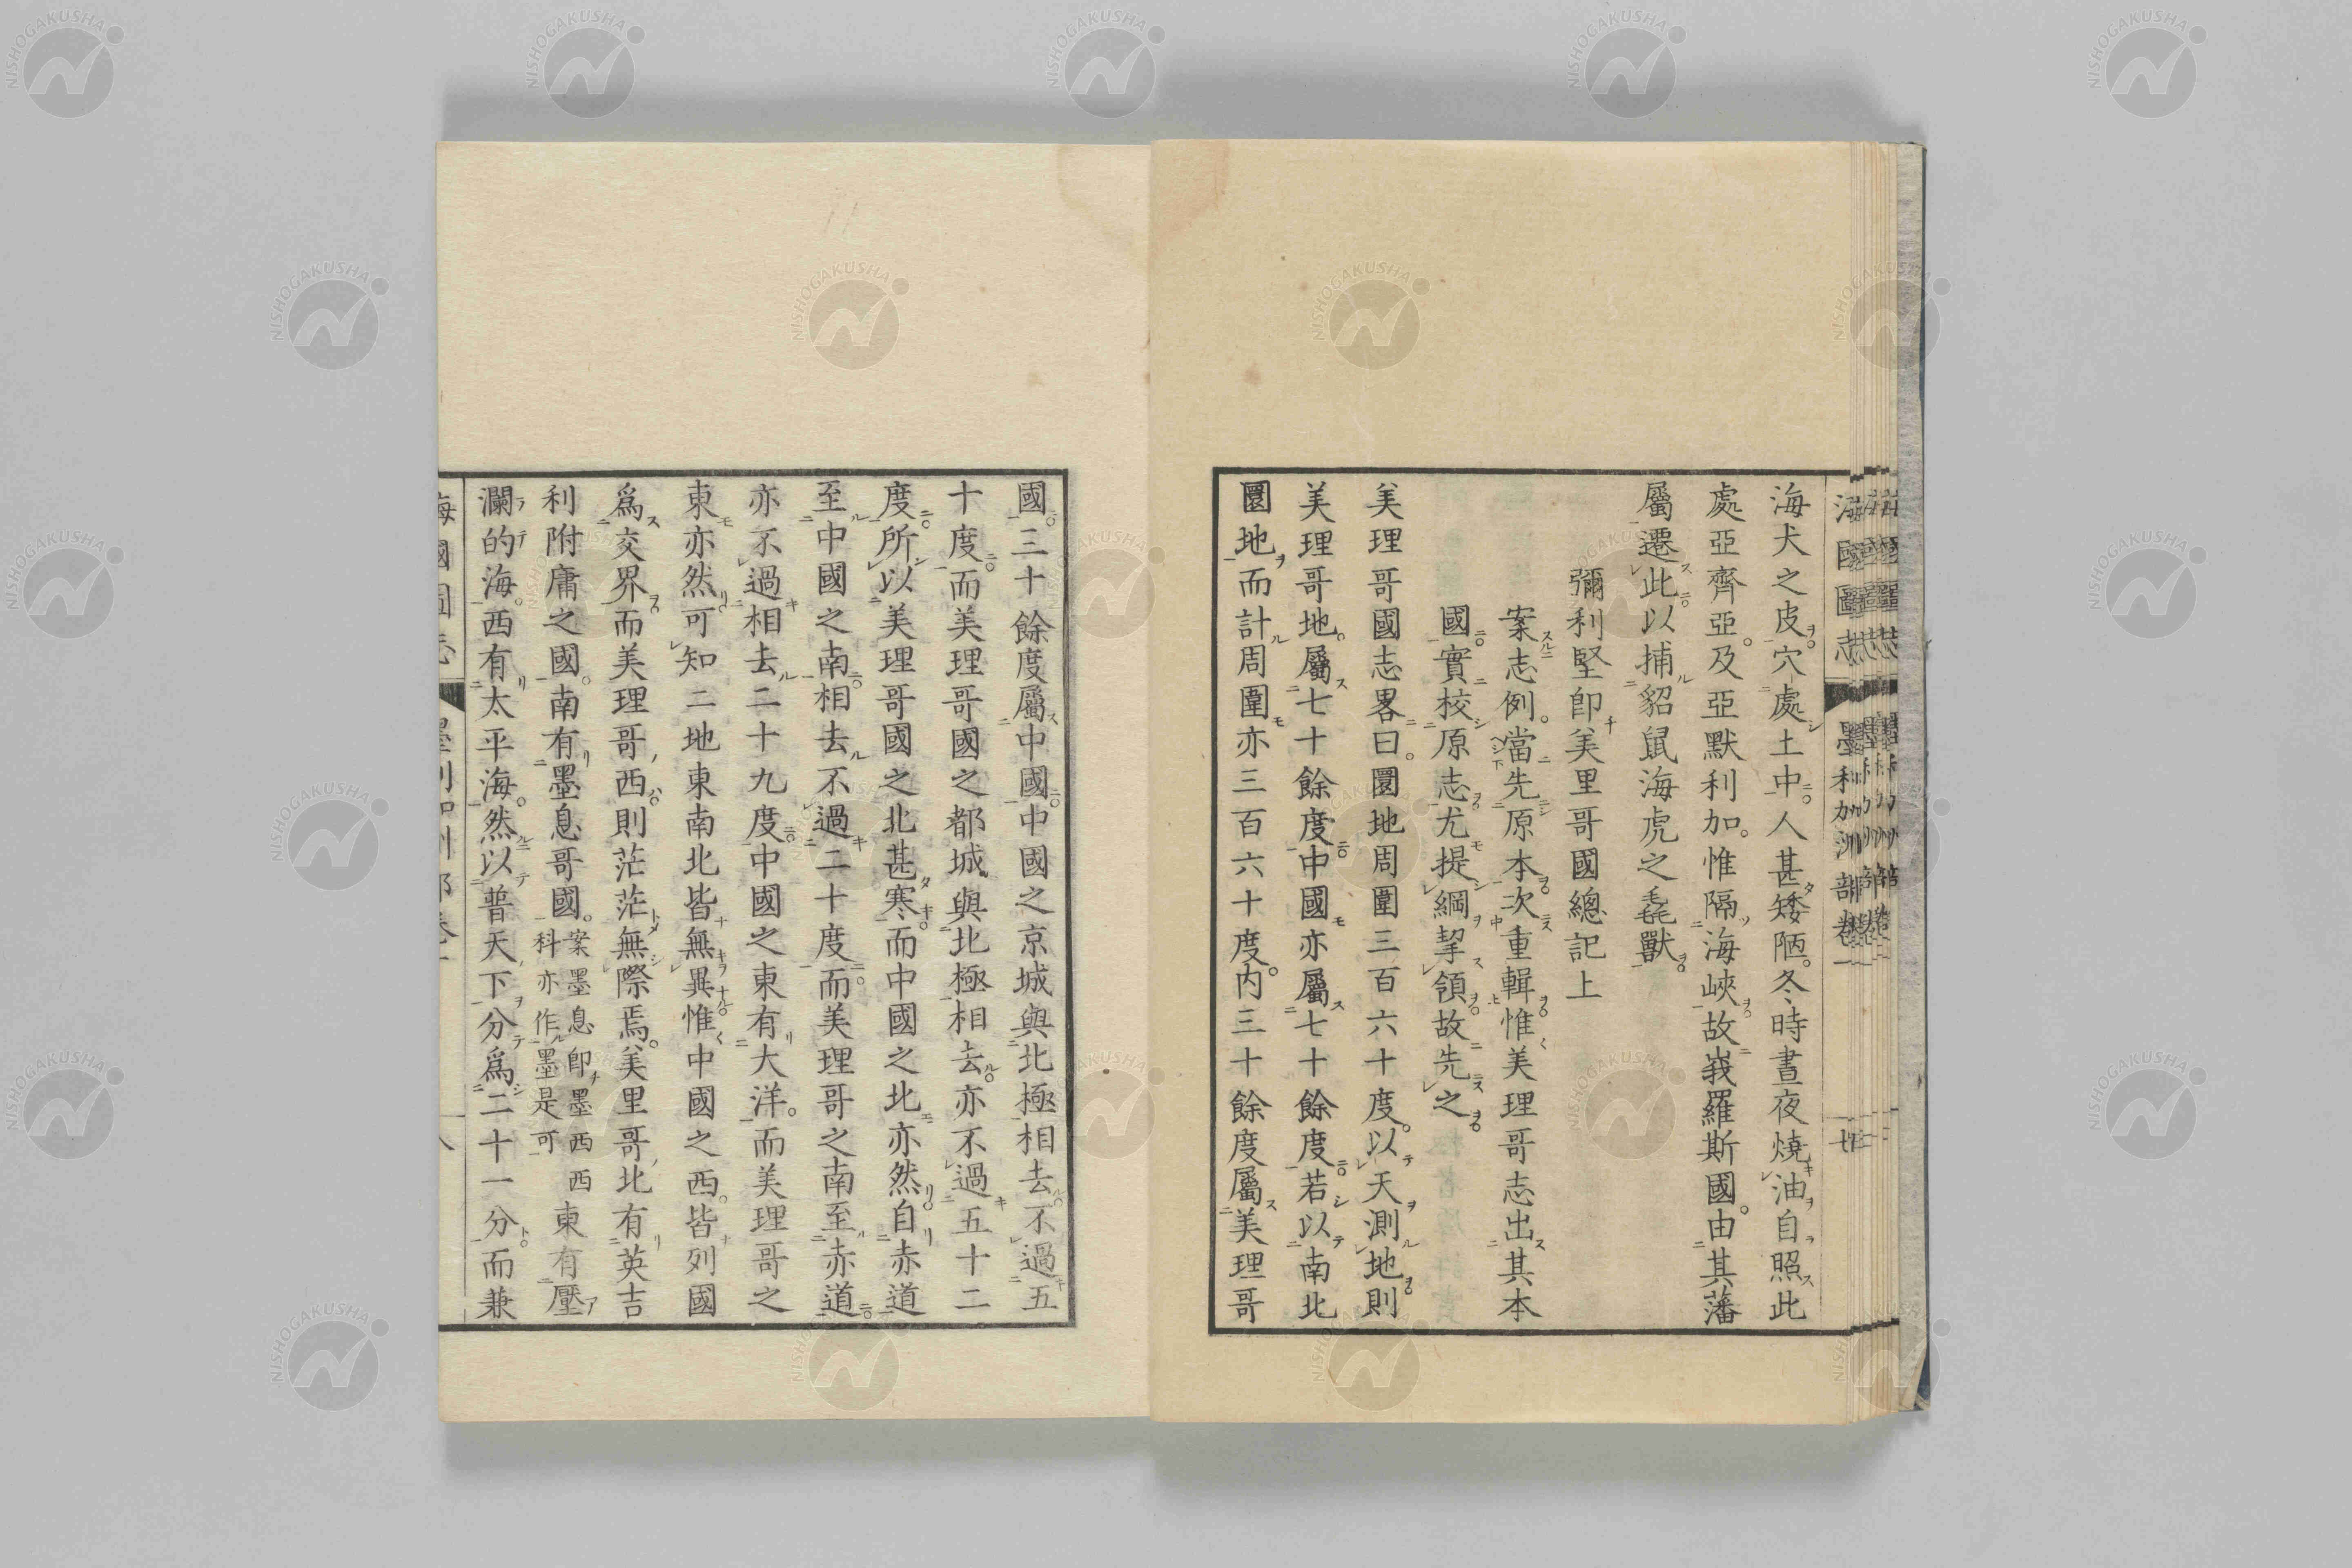 海犬之皮。穴處土中。人甚矮陋。冬時晝夜燒油自照此
處亞齊亞。及亞默利加。惟隔海峽。故峩羅斯國。由其藩
屬遷此。以捕貂鼠海虎之毳獸。
彌利堅即美里哥國總記上
案志例。當先原本。次重輯。惟美理哥志出其本
國。實校原志。尤提綱挈領。故先之。
美理哥國志畧曰。圜地周圍三百六十度。以天測地。則
美理哥地。屬七十餘度。中國亦屬七十餘度。若以南北
圜地。而計周圍亦三百六十度。內三十餘度屬美理哥
國。三十餘度屬中國。中國之京城與北極相去。不過五
十度。而美理哥國之都城。與北極相去。亦不過五十二
度。所以美理哥國之北甚寒。而中國之北亦然。自赤道
至中國之南。相去不過二十度。而美理哥之南至赤道。
亦不過相去二十九度。中國之東有大洋。而美理哥之
東亦然。可知二地東南北皆無異。惟中國之西。皆列國
爲交界。而美理哥西。則茫茫無際焉。美里哥北有英吉
利附庸之國。南有墨息哥國。案墨息即墨西西科亦作墨是可東有壓
瀾的海。西有太平海。然以普天下分爲二十一分。而兼
海國圖志
墨利加洲部卷一
八
NISHOGAKUSHA